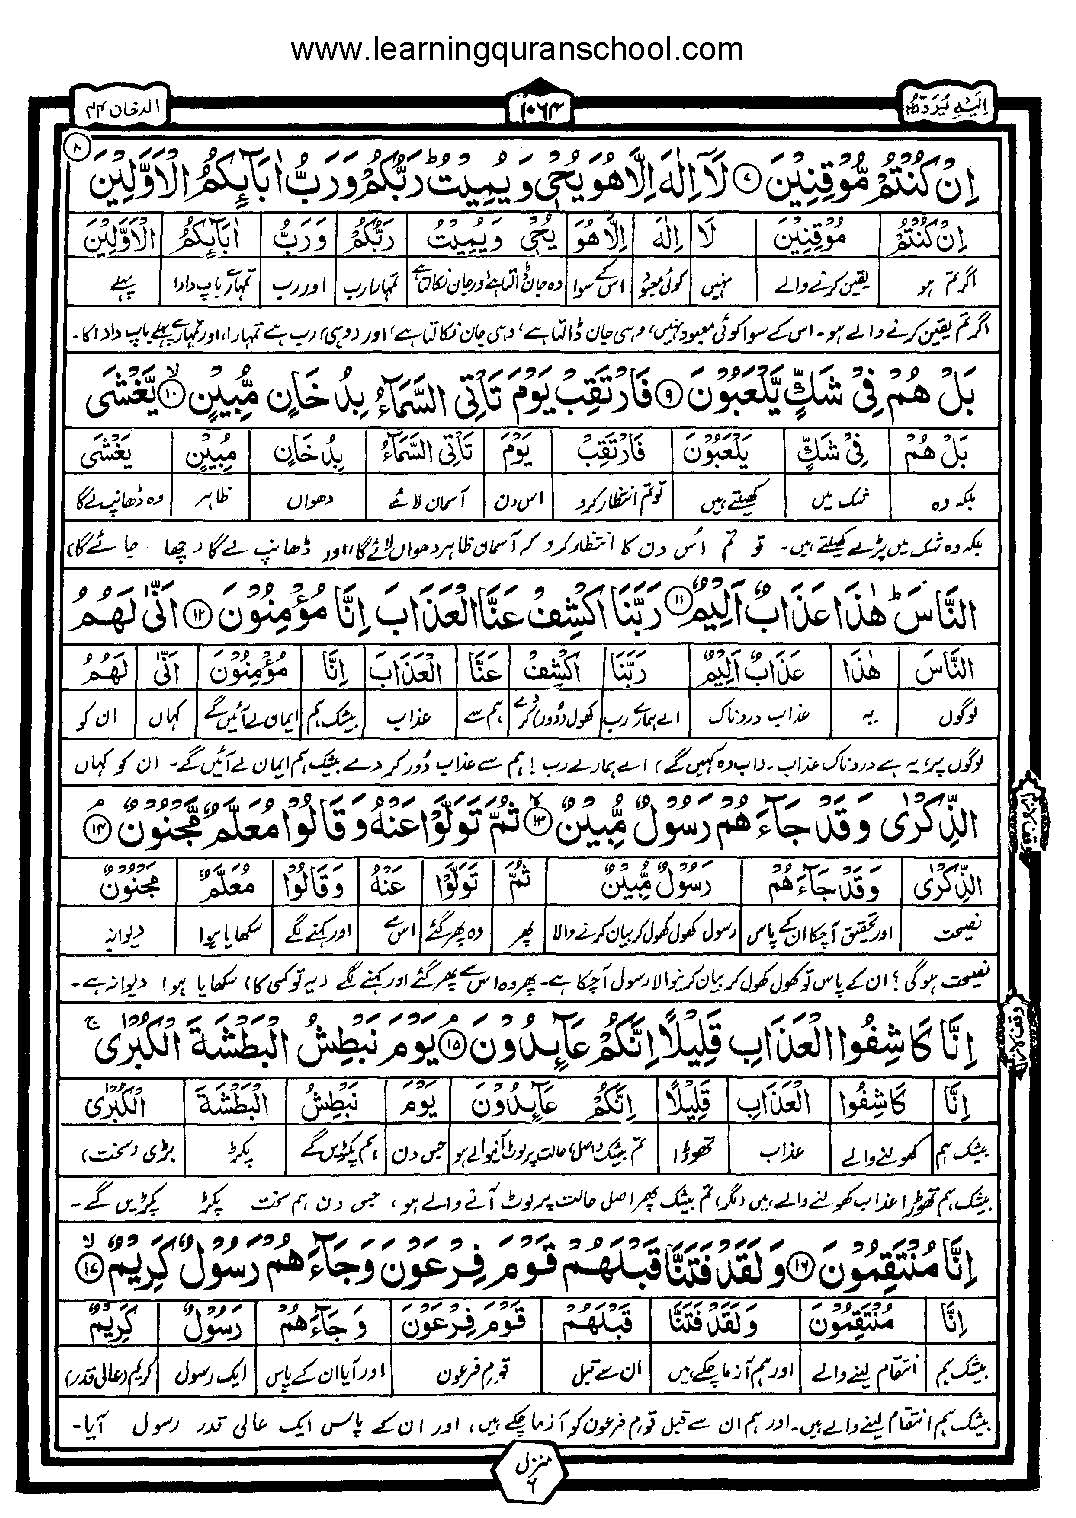 www.learningquranschool.com
الدخان ۴۴
۱۰۶۴
اِلَيْهِ يُرَدُّ ۲۵
۸
اِنْ كُنْتُمْ مُّوْقِنِيْنَ ۷ لَآ اِلٰهَ اِلَّا هُوَ يُحْيٖ وَيُمِيْتُ ؕ رَبُّكُمْ وَرَبُّ اٰبَآىِٕكُمُ الْاَوَّلِيْنَ
اِنْ كُنْتُمْ مُوْقِنِيْنَ لَا اِلٰهَ اِلَّا هُوَ يُحْيٖ وَيُمِيْتُ رَبُّكُمْ وَرَبُّ اٰبَآىِٕكُمُ الْاَوَّلِيْنَ
اگر تم ہو یقین کرنے والے نہیں کوئی معبود اس کے سوا وہ جان ڈالتا ہے اور جان نکالتا ہے تمہارا رب اور رب تمہارے باپ دادا پہلے
اگر تم یقین کرنے والے ہو۔ اس کے سوا کوئی معبود نہیں، وہی جان ڈالتا ہے، وہی جان نکالتا ہے، اور (وہی) رب ہے تمہارا، اور تمہارے پہلے باپ دادا کا۔
بَلْ هُمْ فِيْ شَكٍّ يَّلْعَبُوْنَ ۹ فَارْتَقِبْ يَوْمَ تَاْتِي السَّمَآءُ بِدُخَانٍ مُّبِيْنٍ ۱۰ۙ يَّغْشَى
بَلْ هُمْ فِيْ شَكٍّ يَلْعَبُوْنَ فَارْتَقِبْ يَوْمَ تَاْتِي السَّمَآءُ بِدُخَانٍ مُبِيْنٍ يَغْشَى
بلکہ وہ شک میں کھیلتے ہیں تو تم انتظار کرو اس دن آسمان لائے دھواں ظاہر وہ ڈھانپ لے گا
بلکہ وہ شک میں پڑے کھیلتے ہیں۔ تو تم اُس دن کا انتظار کرو کہ آسمان ظاہر دھواں لائے گا اور ڈھانپ لے گا (چھا جائے گا)
النَّاسَ ؕ هٰذَا عَذَابٌ اَلِيْمٌ ۱۱ رَبَّنَا اكْشِفْ عَنَّا الْعَذَابَ اِنَّا مُؤْمِنُوْنَ ۱۲ اَنّٰى لَهُمُ
النَّاسَ هٰذَا عَذَابٌ اَلِيْمٌ رَبَّنَا اكْشِفْ عَنَّا الْعَذَابَ اِنَّا مُؤْمِنُوْنَ اَنّٰى لَهُمُ
لوگوں یہ عذاب دردناک اے ہمارے رب کھول (دُور) کردے ہم سے عذاب بیشک ہم ایمان لے آئیں گے کہاں ان کو
لوگوں پر، یہ ہے دردناک عذاب۔ (اب وہ کہیں گے) اے ہمارے رب! ہم سے عذاب دُور کر دے بیشک ہم ایمان لے آئیں گے۔ ان کو کہاں
الذِّكْرٰى وَقَدْ جَآءَهُمْ رَسُوْلٌ مُّبِيْنٌ ۱۳ۙ ثُمَّ تَوَلَّوْا عَنْهُ وَقَالُوْا مُعَلَّمٌ مَّجْنُوْنٌ ۱۴ۘ
الذِّكْرٰى وَقَدْ جَآءَهُمْ رَسُوْلٌ مُبِيْنٌ ثُمَّ تَوَلَّوْا عَنْهُ وَقَالُوْا مُعَلَّمٌ مَجْنُوْنٌ
نصیحت اور تحقیق آچکا ان کے پاس رسول کھول کھول کر بیان کرنے والا پھر وہ پھر گئے اس سے اور کہنے لگے سکھایا ہوا دیوانہ
نصیحت ہوگی؟ ان کے پاس تو کھول کھول کر بیان کرنیوالا رسول آچکا ہے۔ پھر وہ اس سے پھر گئے اور کہنے لگے (یہ تو کسی کا) سکھایا ہوا دیوانہ ہے۔
اِنَّا كَاشِفُوا الْعَذَابِ قَلِيْلًا اِنَّكُمْ عَآىِٕدُوْنَ ۱۵ۘ يَوْمَ نَبْطِشُ الْبَطْشَةَ الْكُبْرٰى ۚ
اِنَّا كَاشِفُوا الْعَذَابِ قَلِيْلًا اِنَّكُمْ عَآىِٕدُوْنَ يَوْمَ نَبْطِشُ الْبَطْشَةَ الْكُبْرٰى
بیشک ہم کھولنے والے عذاب تھوڑا تم بیشک (اصل) حالت پر لوٹ آنیوالے ہو جس دن ہم پکڑیں گے پکڑ بڑی (سخت)
بیشک ہم تھوڑا عذاب کھولنے والے ہیں (مگر) تم بیشک پھر اصل حالت پر لوٹ آنے والے ہو، جس دن ہم سخت پکڑ پکڑیں گے۔
اِنَّا مُنْتَقِمُوْنَ ۱۶ وَلَقَدْ فَتَنَّا قَبْلَهُمْ قَوْمَ فِرْعَوْنَ وَجَآءَهُمْ رَسُوْلٌ كَرِيْمٌ ۱۷ۙ
اِنَّا مُنْتَقِمُوْنَ وَلَقَدْ فَتَنَّا قَبْلَهُمْ قَوْمَ فِرْعَوْنَ وَجَآءَهُمْ رَسُوْلٌ كَرِيْمٌ
بیشک ہم انتقام لینے والے اور ہم آزما چکے ہیں ان سے قبل قوم فرعون اور آیا ان کے پاس ایک رسول کریم (عالی قدر)
بیشک ہم انتقام لینے والے ہیں۔ اور ہم ان سے قبل قوم فرعون کو آزما چکے ہیں، اور ان کے پاس ایک عالی قدر رسول آیا۔
منزل ۶